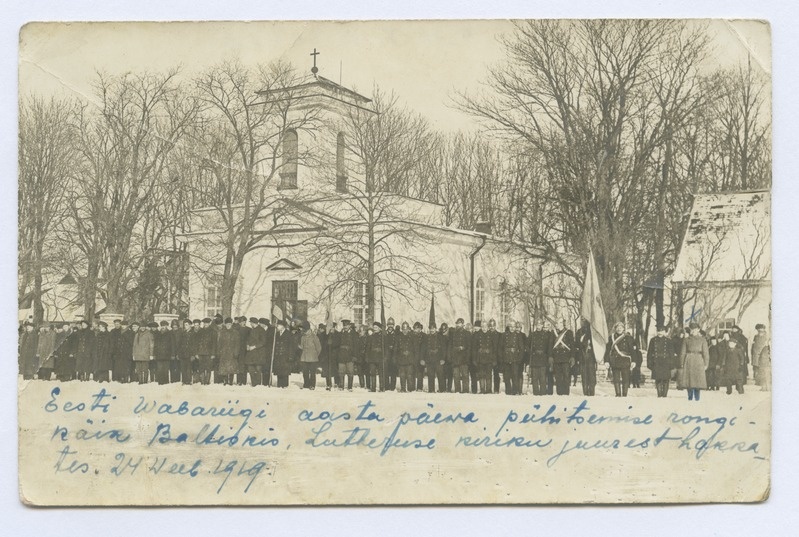 Eesti Wabariigi aasta päewa pühitsemise rongi-
käik Baltiskis, Lutheruse kiriku juurest hakka-
tes. 24 Veeb 1919.